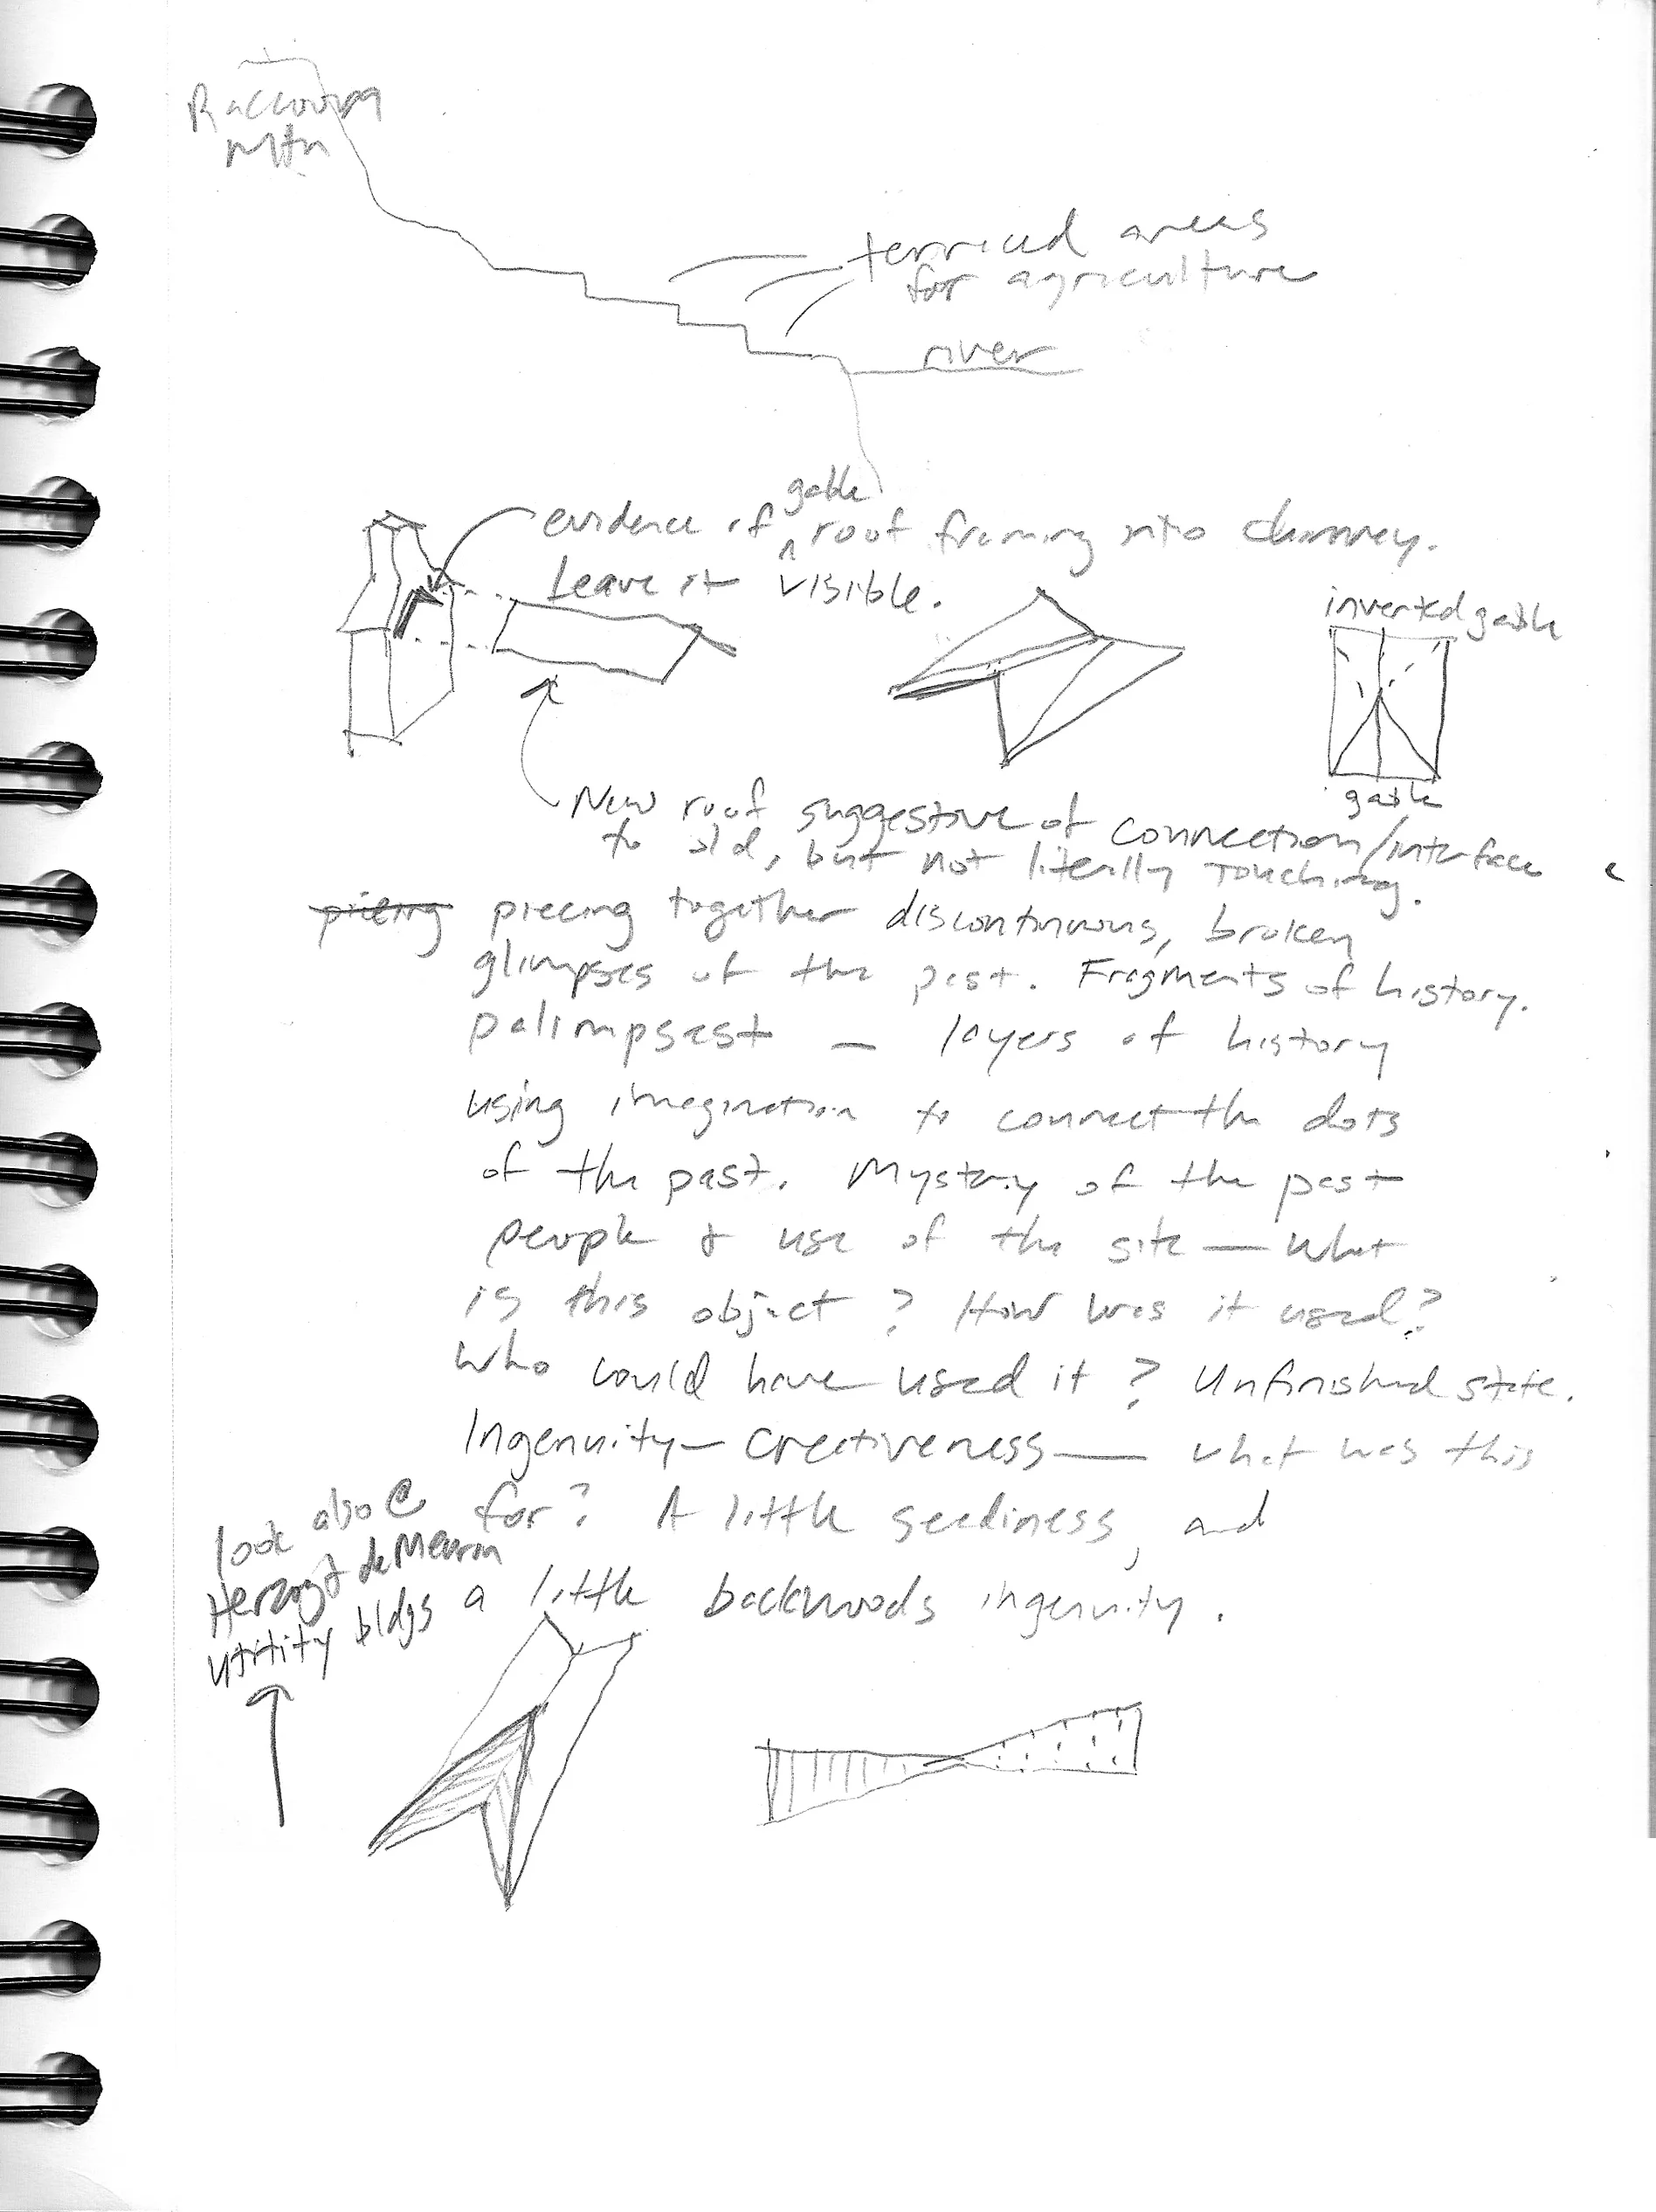 Raccoon
Mtn
terriced areas
for agriculture
river
gable
evidence of ^ roof framing into chimney.
Leave it visible.
inverted gable
gable
New roof suggestive of connection/interface
to old, but not literally touching.
piecing piecing together discontinuous, broken
glimpses of the past. Fragments of history.
palimpsest — layers of history
using imagination to connect the dots
of the past. Mystery of the past
people & use of the site — What
is this object? How was it used?
Who could have used it? Unfinished state.
Ingenuity — Creativeness — what was this
for? A little seediness, and
a little backwoods ingenuity.
look also @
Herzog & de Meuron
utility bldgs